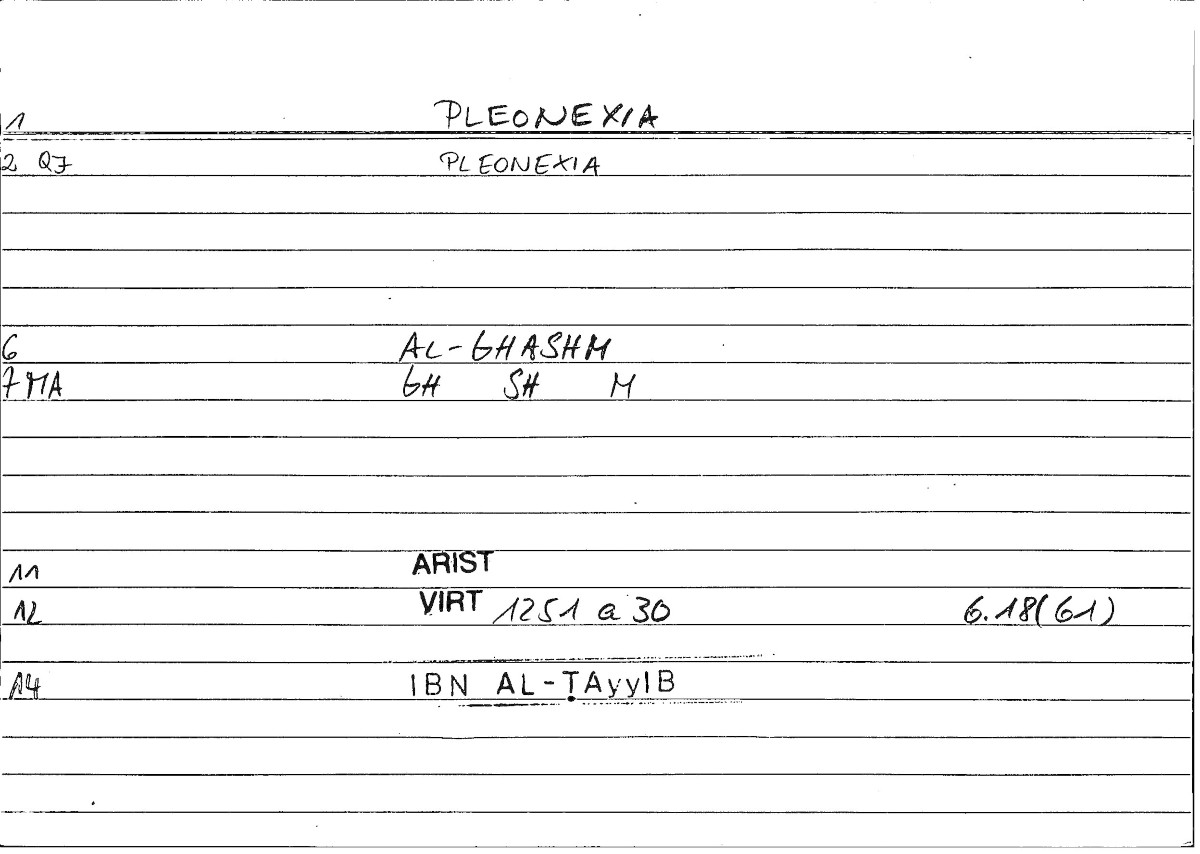 1 PLEONEXIA
2 QJ PLEONEXIA
6 AL-GHASHM
7 MA GH SH M
11 ARIST
12 VIRT 1251 a 30 6.18(61)
14 IBN AL-ṬAyyIB